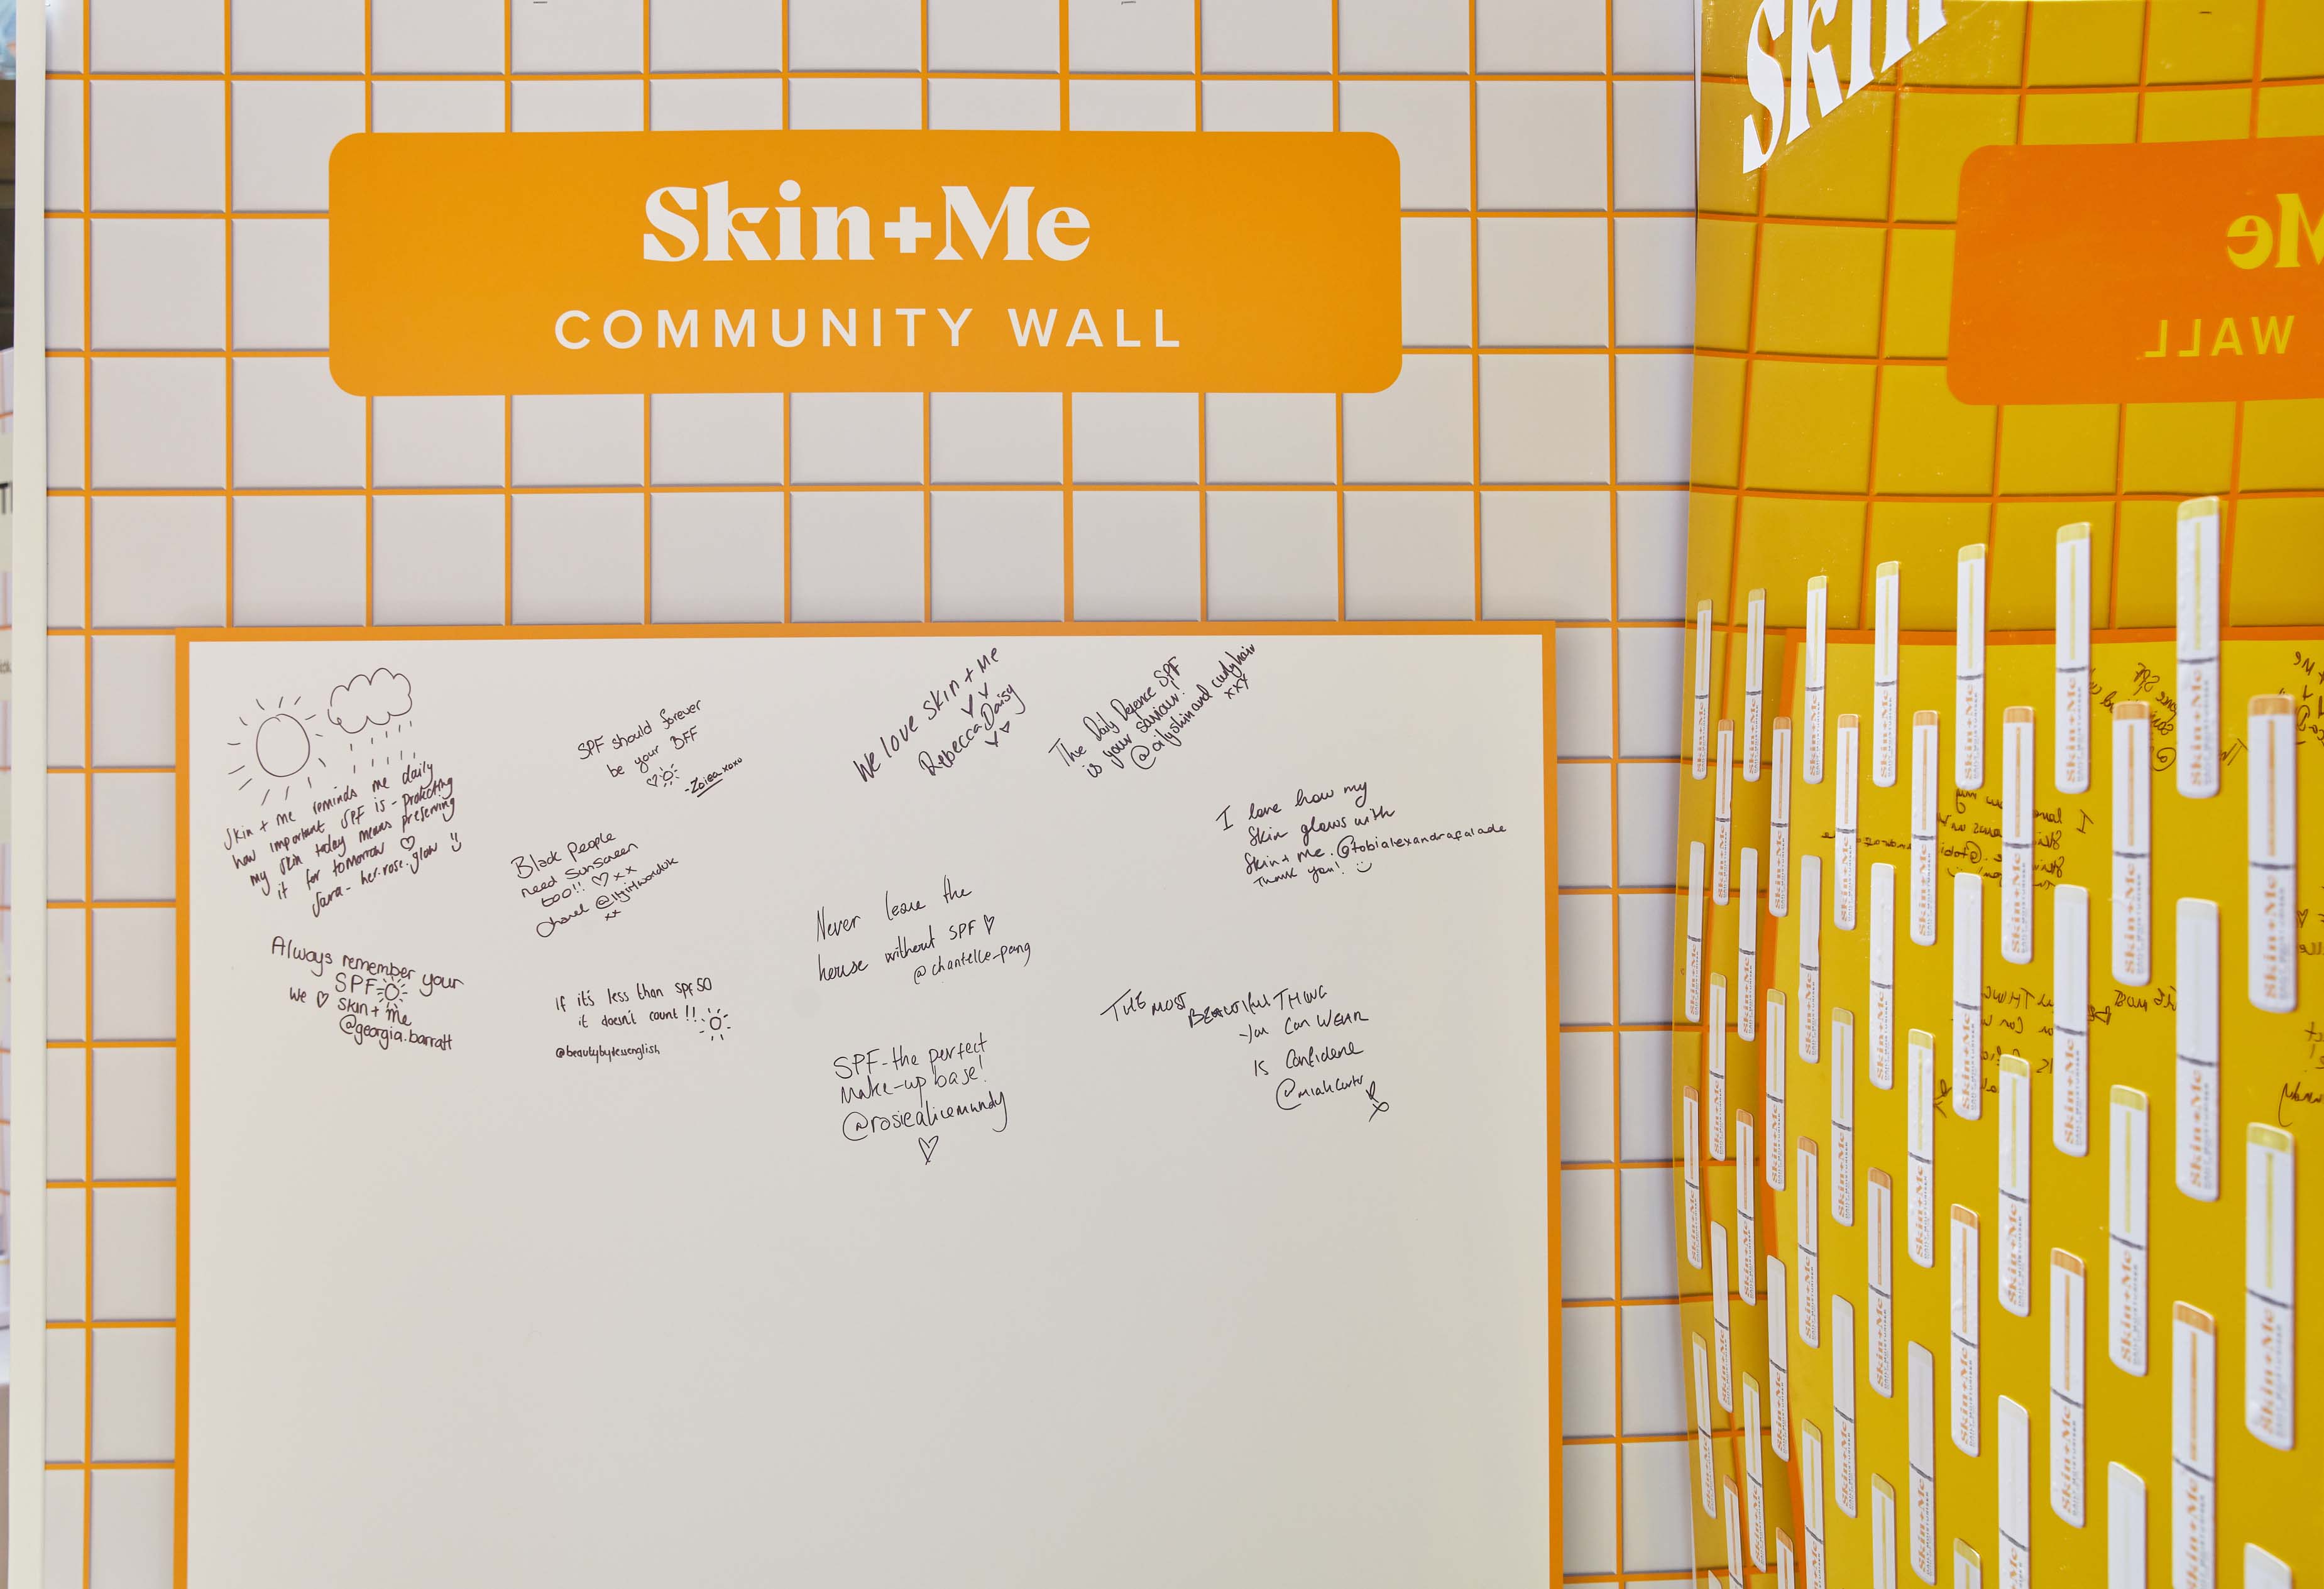 Skin+Me
COMMUNITY WALL
Skin + me reminds me daily
how important SPF is - protecting
my skin today means preserving
it for tomorrow ♡
Sara - her.rose.glow
SPF should forever
be your BFF
♡
-Zoiea xoxo
We love skin + me
Rebecca Daisy
The Daily Defence SPF
is your saviour!
@oilyskinandcurlyhair
xxx
Black People
need Sunscreen
too!! ♡ xx
xx
I love how my
Skin glows with
Skin + me. @tobialexandrafalade
Thank you! :)
Never leave the
house without SPF ♡
@chantelle_pang
Always remember your
SPF
We ♡ Skin + me
@georgia.barratt
If it's less than spf 50
it doesn't count!!
@beautybytessenglish
SPF - the perfect
Make-up base!
@rosiealicemundy
♡
THE MOST
BEAUTIFUL THING
You Can WEAR
Is Confidence
Skin
Me
WALL
Skin+Me